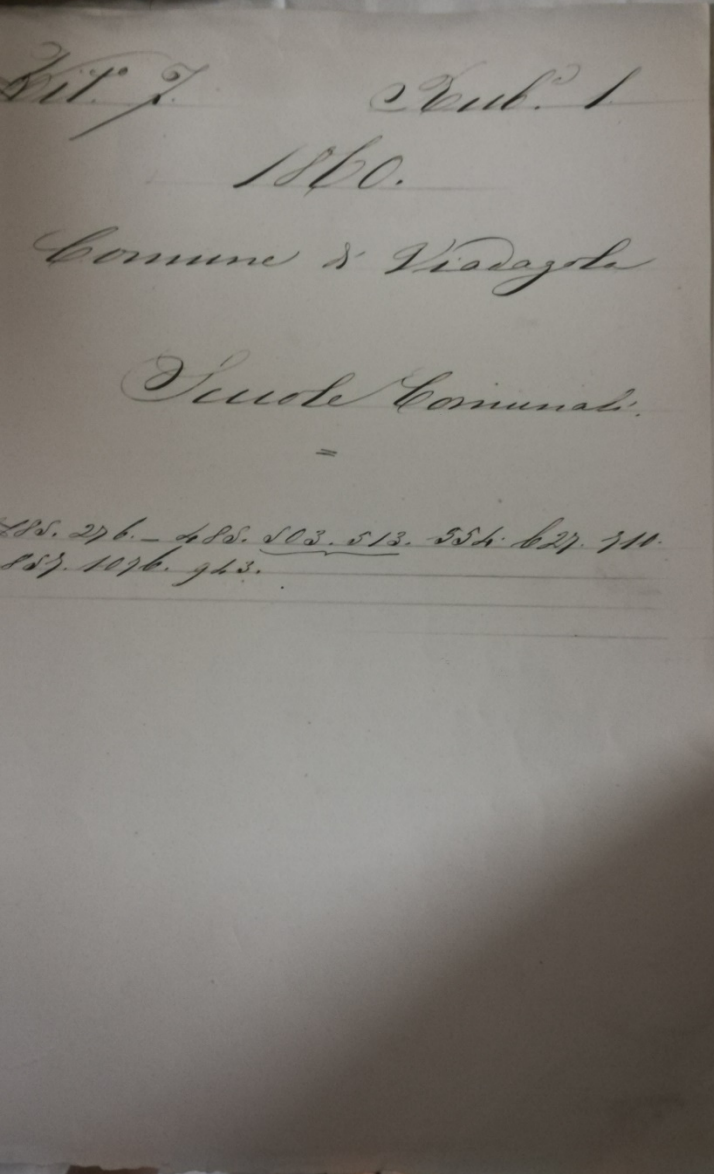 Tit.° 7. Rub.ª 1
1860.
Comune di Viadagola
Scuole Comunali.
=
185. 276. – 485. 503. 513. 554. 627. 710.
857. 1076. 943.